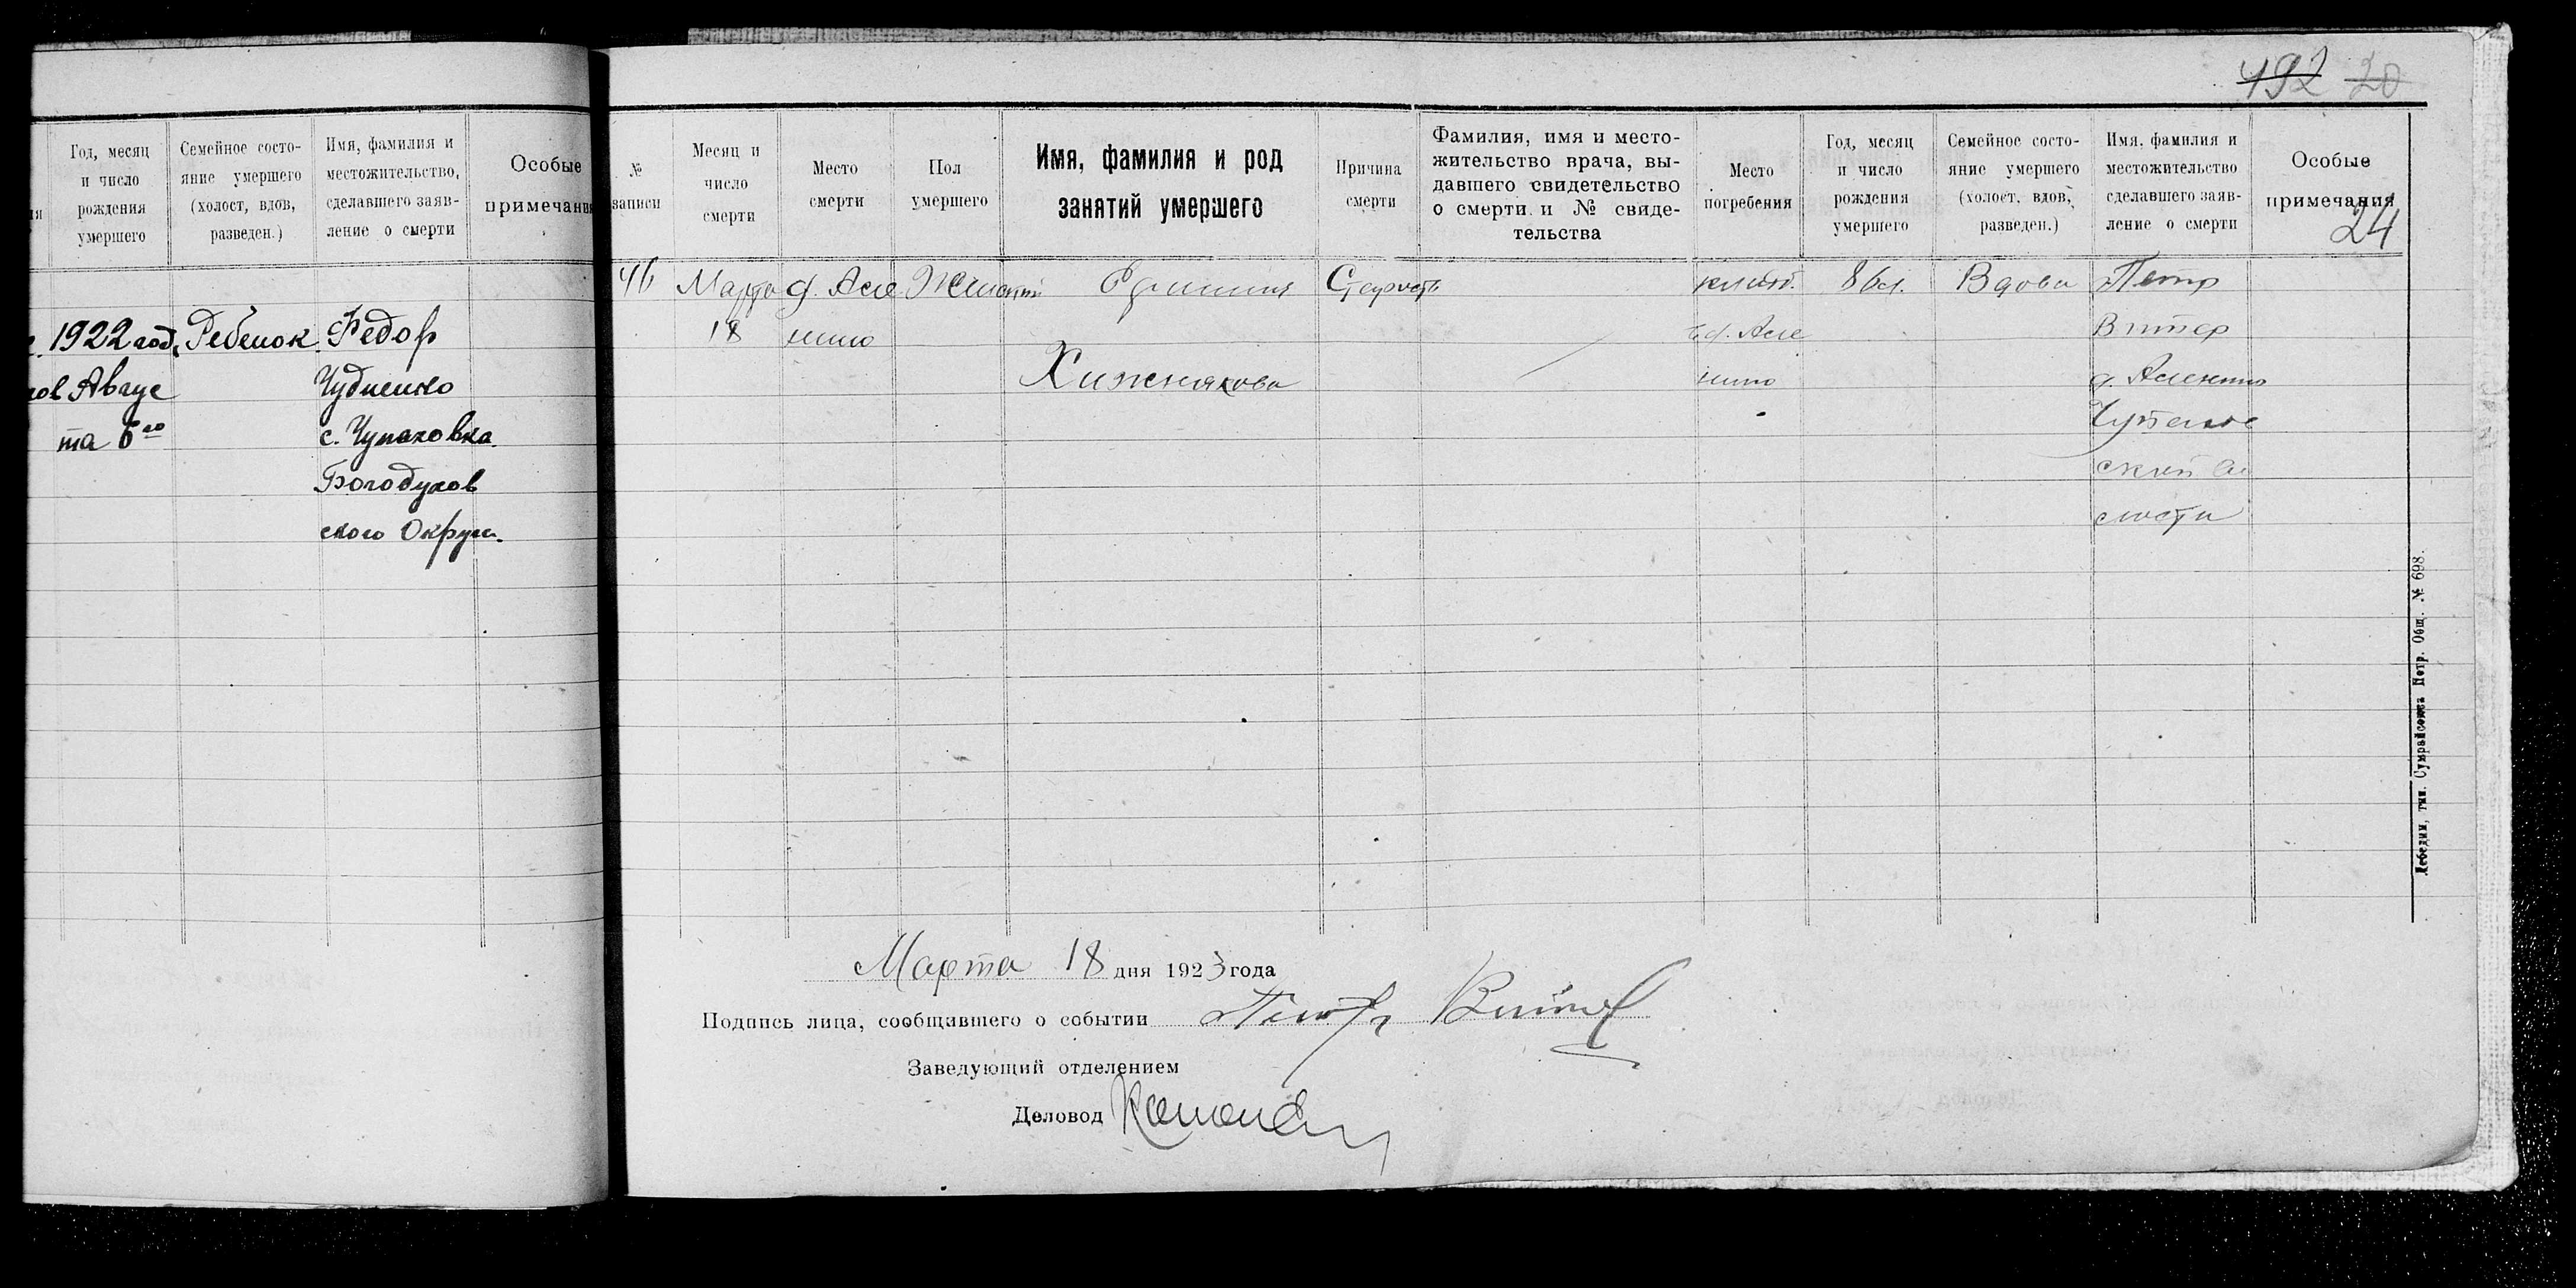 492 20
Год, месяц
и число
рождения
умершего
Семейное состо-
яние умершего
(холост, вдов,
разведен.)
Имя, фамилия и
местожительство,
сделавшего заяв-
ление о смерти
Особые
примечания
1922 год. Ребенок. Федор
Авгус Чудненко
та 6го с. Чупаховка
Богодухов
ского Округа.
№
записи
Месяц и
число
смерти
Место
смерти
Пол
умершего
Имя, фамилия и род
занятий умершего
Причина
смерти
Фамилия, имя и место-
жительство врача, вы-
давшего свидетельство
о смерти и № свиде-
тельства
Место
погребения
Год, месяц
и число
рождения
умершего
Семейное состо-
яние умершего
(холост, вдов,
разведен.)
Имя, фамилия и
местожительство
сделавшего заяв-
ление о смерти
Особые
примечания
24
46 Марта д. Але Женский Старость кладб. 86 л. Вдова Петр
18 в д. Але
Хижнякова
д. Аленино
ской
Марта 18 дня 1923 года
Подпись лица, сообщившего о событии Петр
Заведующий отделением
Деловод
Лебедин, тип. Сумрайсоюза Потр. Общ. № 698.